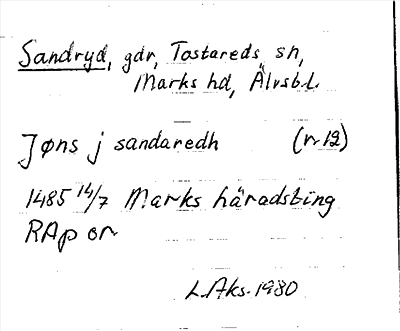 Sandryd, gdr, Tostareds sn,
Marks hd, Älvsb.l.
Jøns j sandaredh (nr 12)
1485 14/7 Marks häradsting
RAp or
L.Aks. 1980